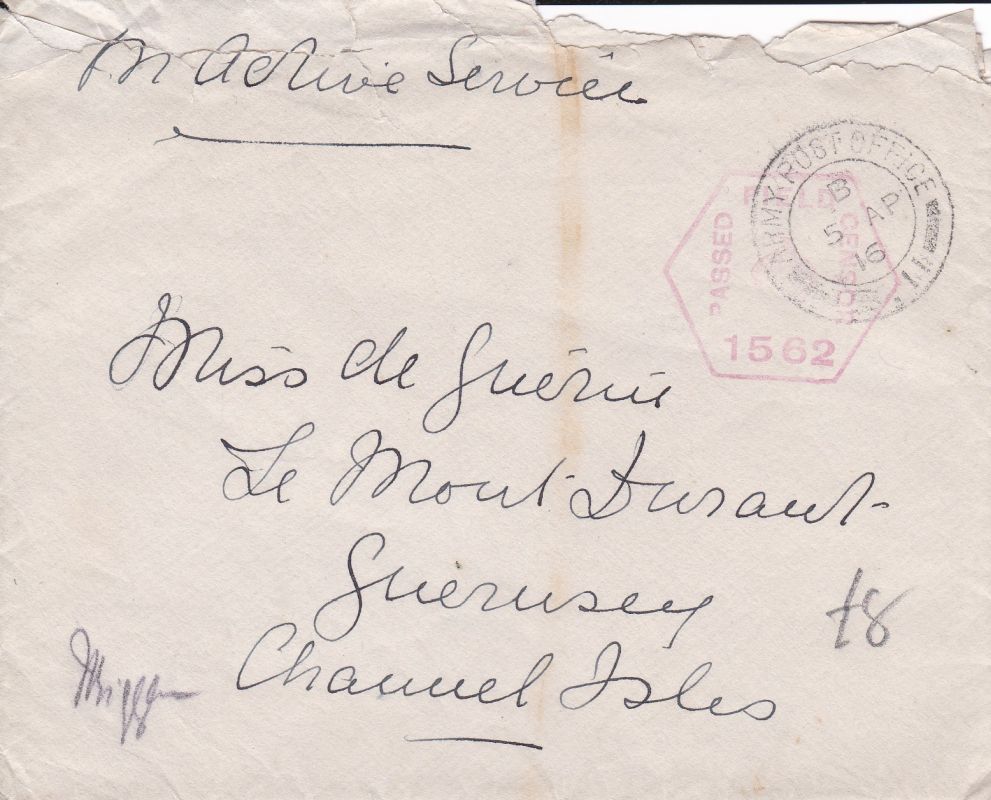 On Active Service
ARMY POST OFFICE
B
AP
5
16
PASSED FIELD CENSOR
1562
Miss de Guérin
Le Mont Durant
Guernsey
Channel Isles